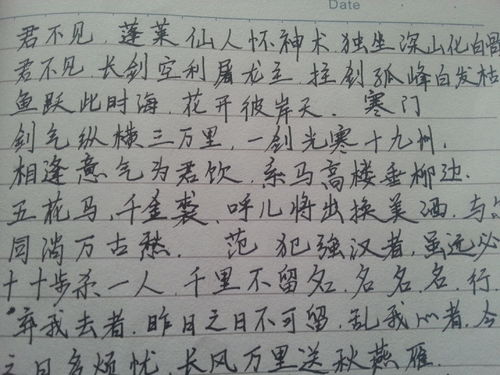 Date
君不见,蓬莱仙人怀神术,独坐深山化白骨
君不见,长剑空利屠龙主,拄剑孤峰白发枯
鱼跃此时海,花开彼岸天. 寒门
剑气纵横三万里,一剑光寒十九州.
相逢意气为君饮,系马高楼垂柳边.
五花马,千金裘,呼儿将出换美酒,与
同淌万古愁. 范 犯强汉者,虽远必
十十步杀一人,千里不留名,名名名,行.
弃我去者,昨日之日不可留,乱我心者,今
之日多烦忧,长风万里送秋燕雁.